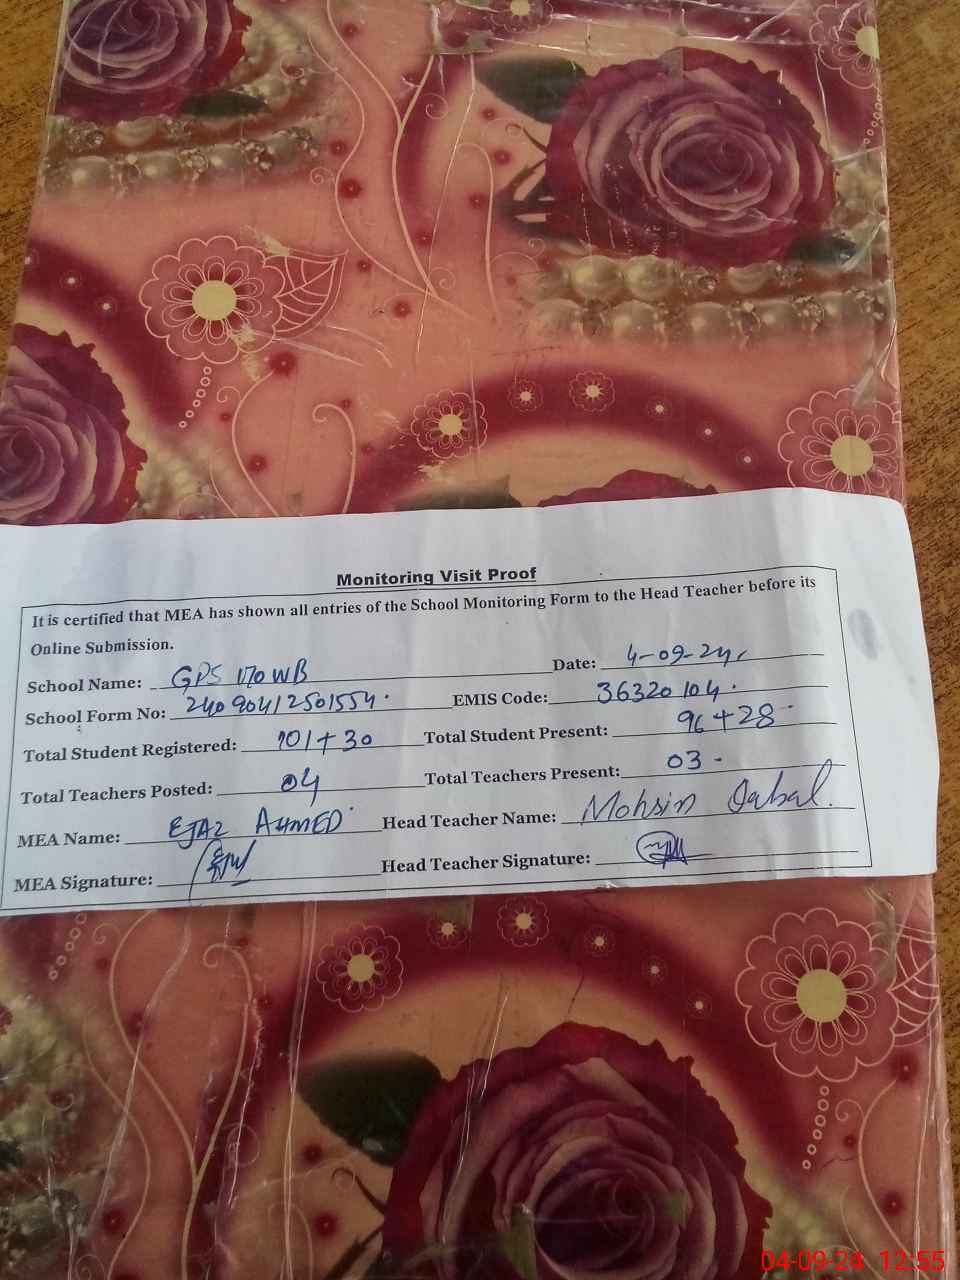 Monitoring Visit Proof
It is certified that MEA has shown all entries of the School Monitoring Form to the Head Teacher before its
Online Submission.
School Name: GPS 170 WB Date: 4-09-24
School Form No: 24090412501554. EMIS Code: 36320104.
Total Student Registered: 101+30 Total Student Present: 96+28
Total Teachers Posted: 04 Total Teachers Present: 03
MEA Name: EJAZ AHMED Head Teacher Name: Mohsin Iqbal.
MEA Signature: Head Teacher Signature:
04-09-24 12:55